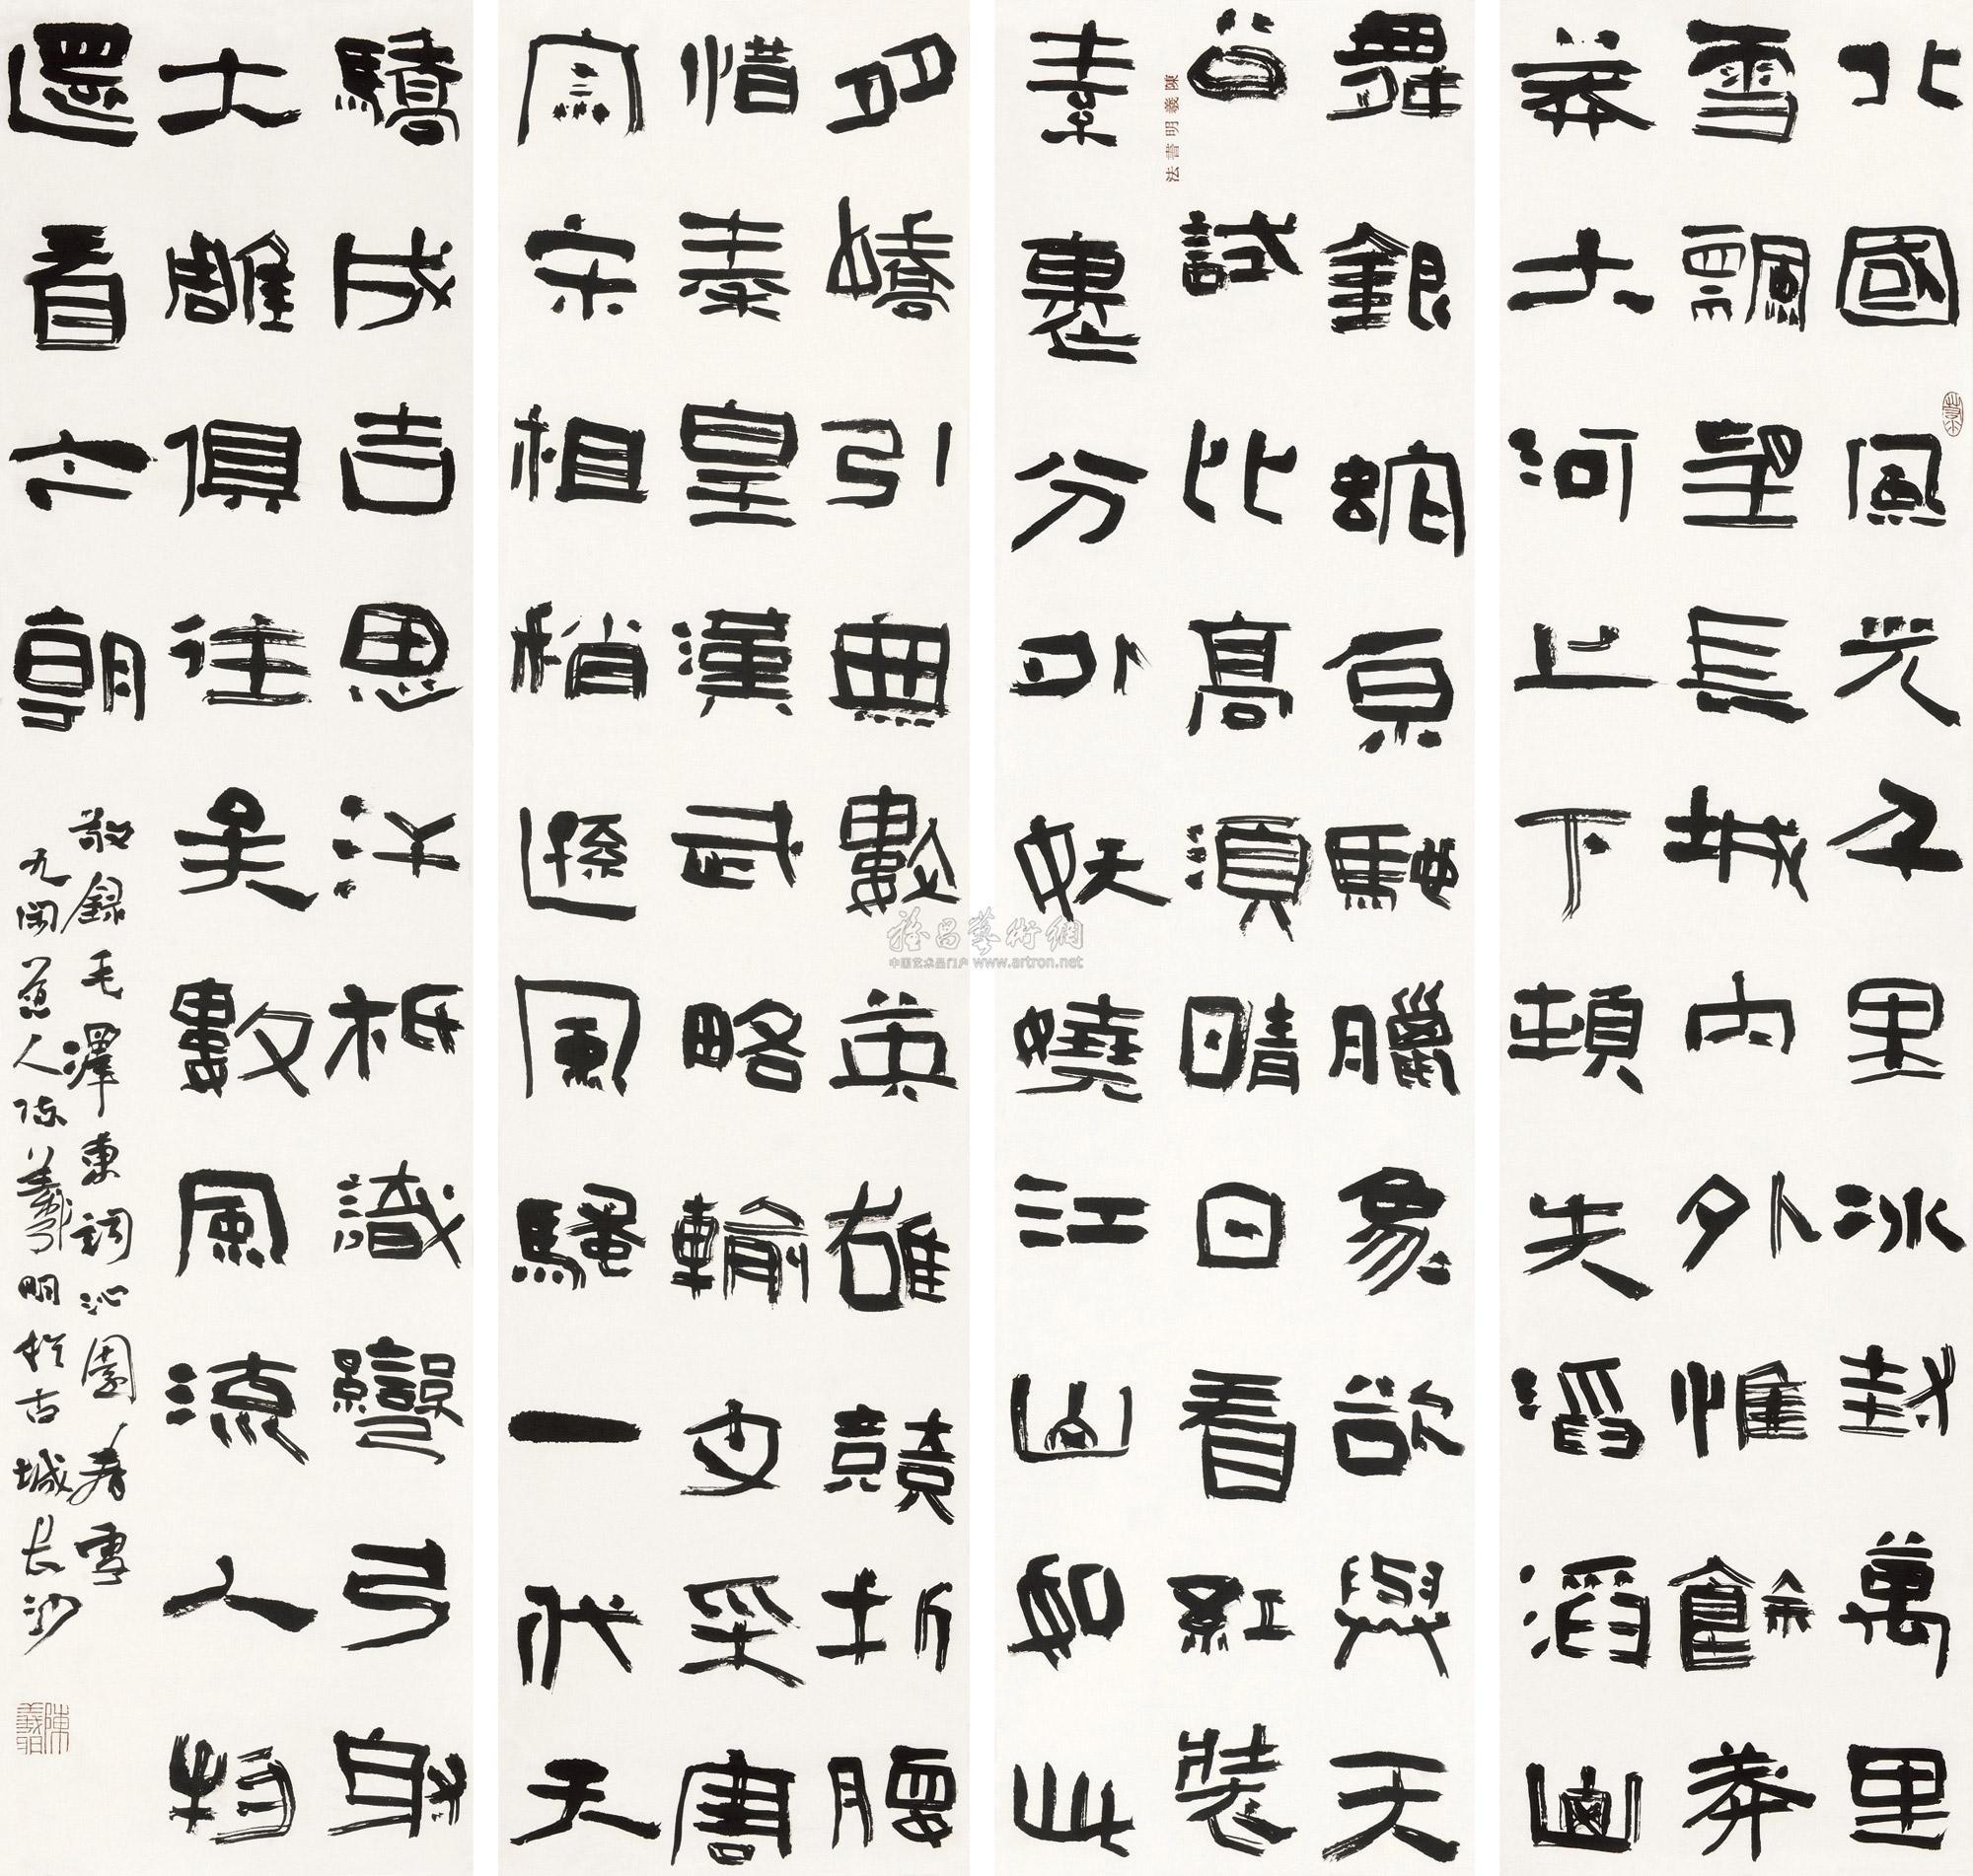 北國風光千里冰封萬里
雪飄望長城內外惟餘莽
莽大河上下頓失滔滔山
舞銀蛇原馳臘象欲與天
公試比高須晴日看紅裝
素裹分外妖嬈江山如此
多嬌引無數英雄競折腰
惜秦皇漢武略輸文采唐
宗宋祖稍遜風騷一代天
驕成吉思汗祇識彎弓射
大雕俱往矣數風流人物
還看今朝
敬録毛澤東詞沁園春雪
九閑人陳羲明於古城長沙
陳羲明書法
雅昌藝術網
中国艺术品门户 www.artron.net